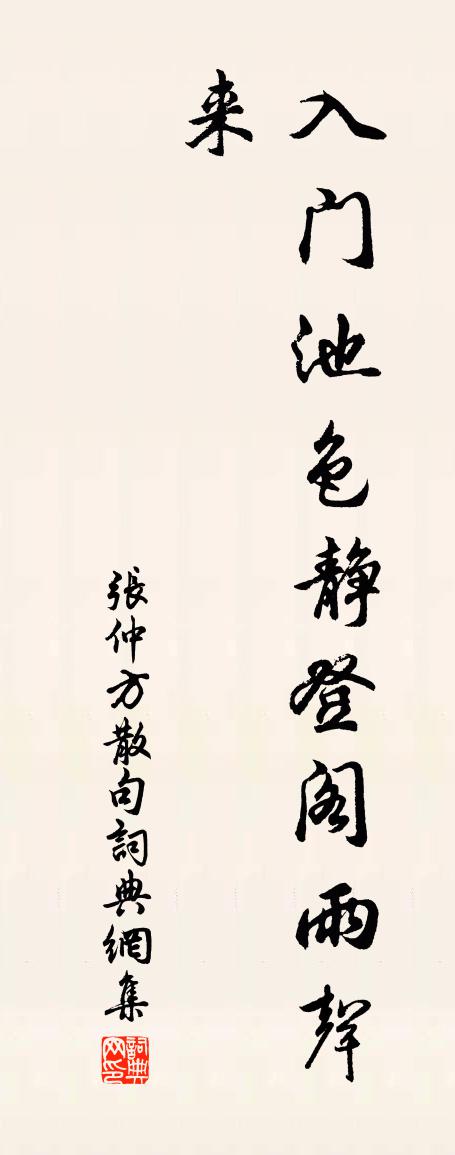 入门池色静登阁雨聲
来
張仲方散句詞典網集
詞典网印